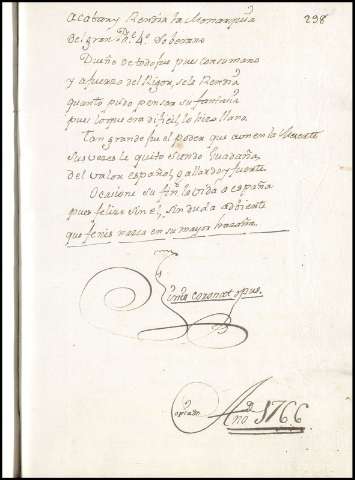 acaban y Rendida la Monarquia
298
del gran Ph.e 4.o Soberano
Dueño de todo fue pues con su mano
y afuerza del Rigor, se le Rendia
quanto pudo pensar su fantasia
pues lo que era dificil, lo hizo llano.
Tan grande fue el poder que aun en la Muerte
sus vezes le quitó siendo Guadaña,
del valor español, Gallardo y fuerte.
Ocasione su fin la vida a españa
pues felize sin el, sin duda advierte
que fenix nazca en su mayor hazaña.
Finis coronat opus.
Copiado
Año D. 1766